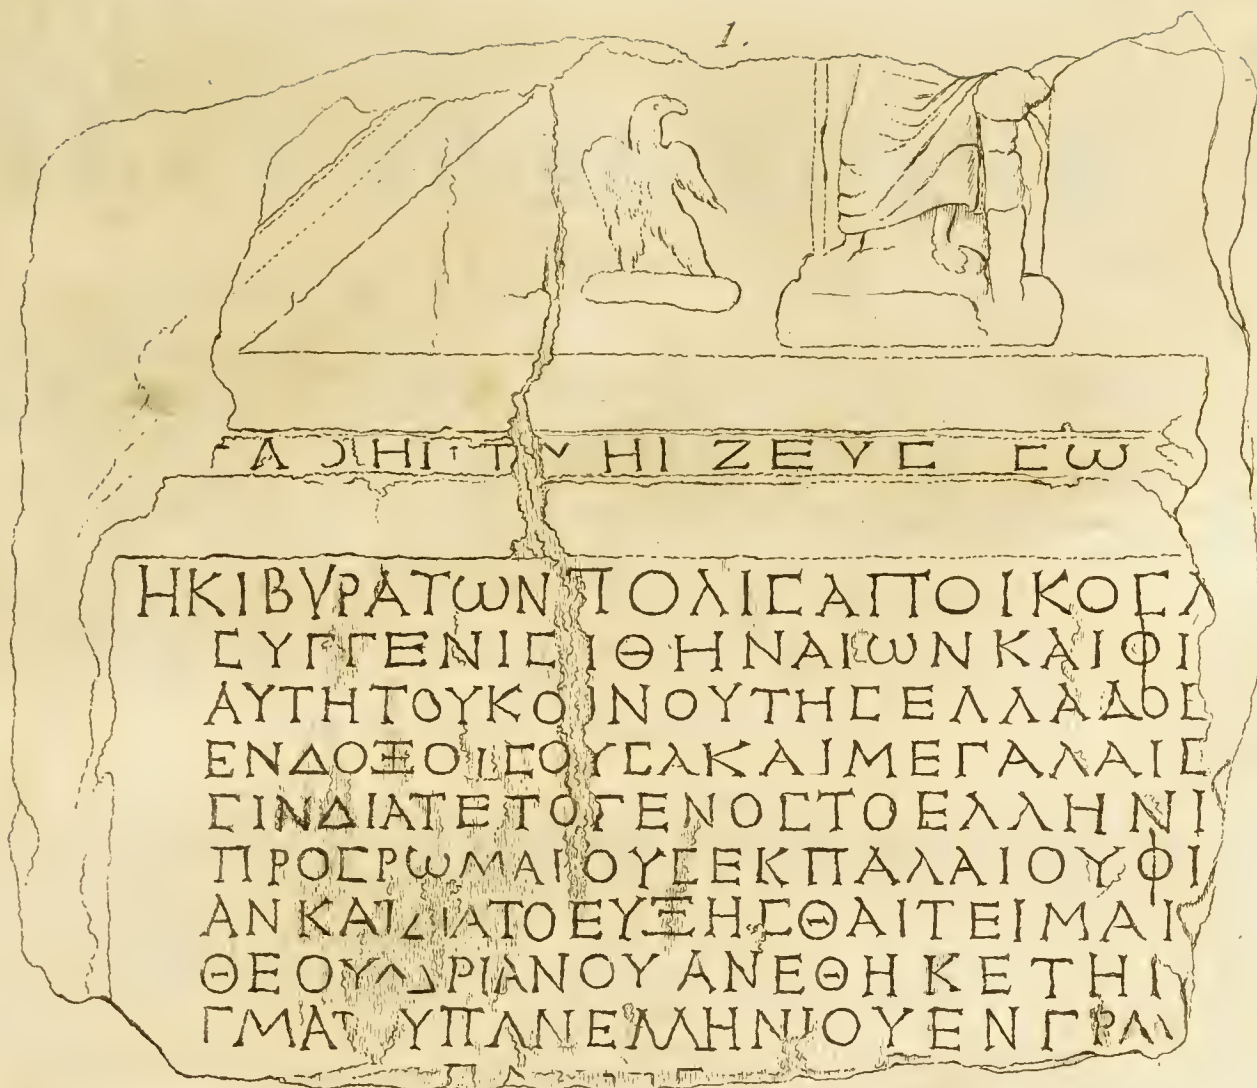 1.
ΗΙ ΖΕΥϹ ϹΩ
ΗΚΙΒΥΡΑΤΩΝΠΟΛΙϹΑΠΟΙΚΟϹΛ
ϹΥΓΓΕΝΙϹΙΘΗΝΑΙΩΝΚΑΙΦΙ
ΑΥΤΗΤΟΥΚΟΙΝΟΥΤΗϹΕΛΛΑΔΟϹ
ΕΝΔΟΞΟΙϹΟΥϹΑΚΑΙΜΕΓΑΛΑΙϹ
ϹΙΝΔΙΑΤΕΤΟΓΕΝΟϹΤΟΕΛΛΗΝΙ
ΠΡΟϹΡΩΜΑΙΟΥϹΕΚΠΑΛΑΙΟΥΦΙ
ΑΝΚΑΙΔΙΑΤΟΕΥΞΗϹΘΑΙΤΕΙΜΑΙ
ΘΕΟΥΑΔΡΙΑΝΟΥΑΝΕΘΗΚΕΤΗΙ
ΓΜΑΤ ΥΠΑΝΕΛΛΗΝΙΟΥΕΝΓΡΑ